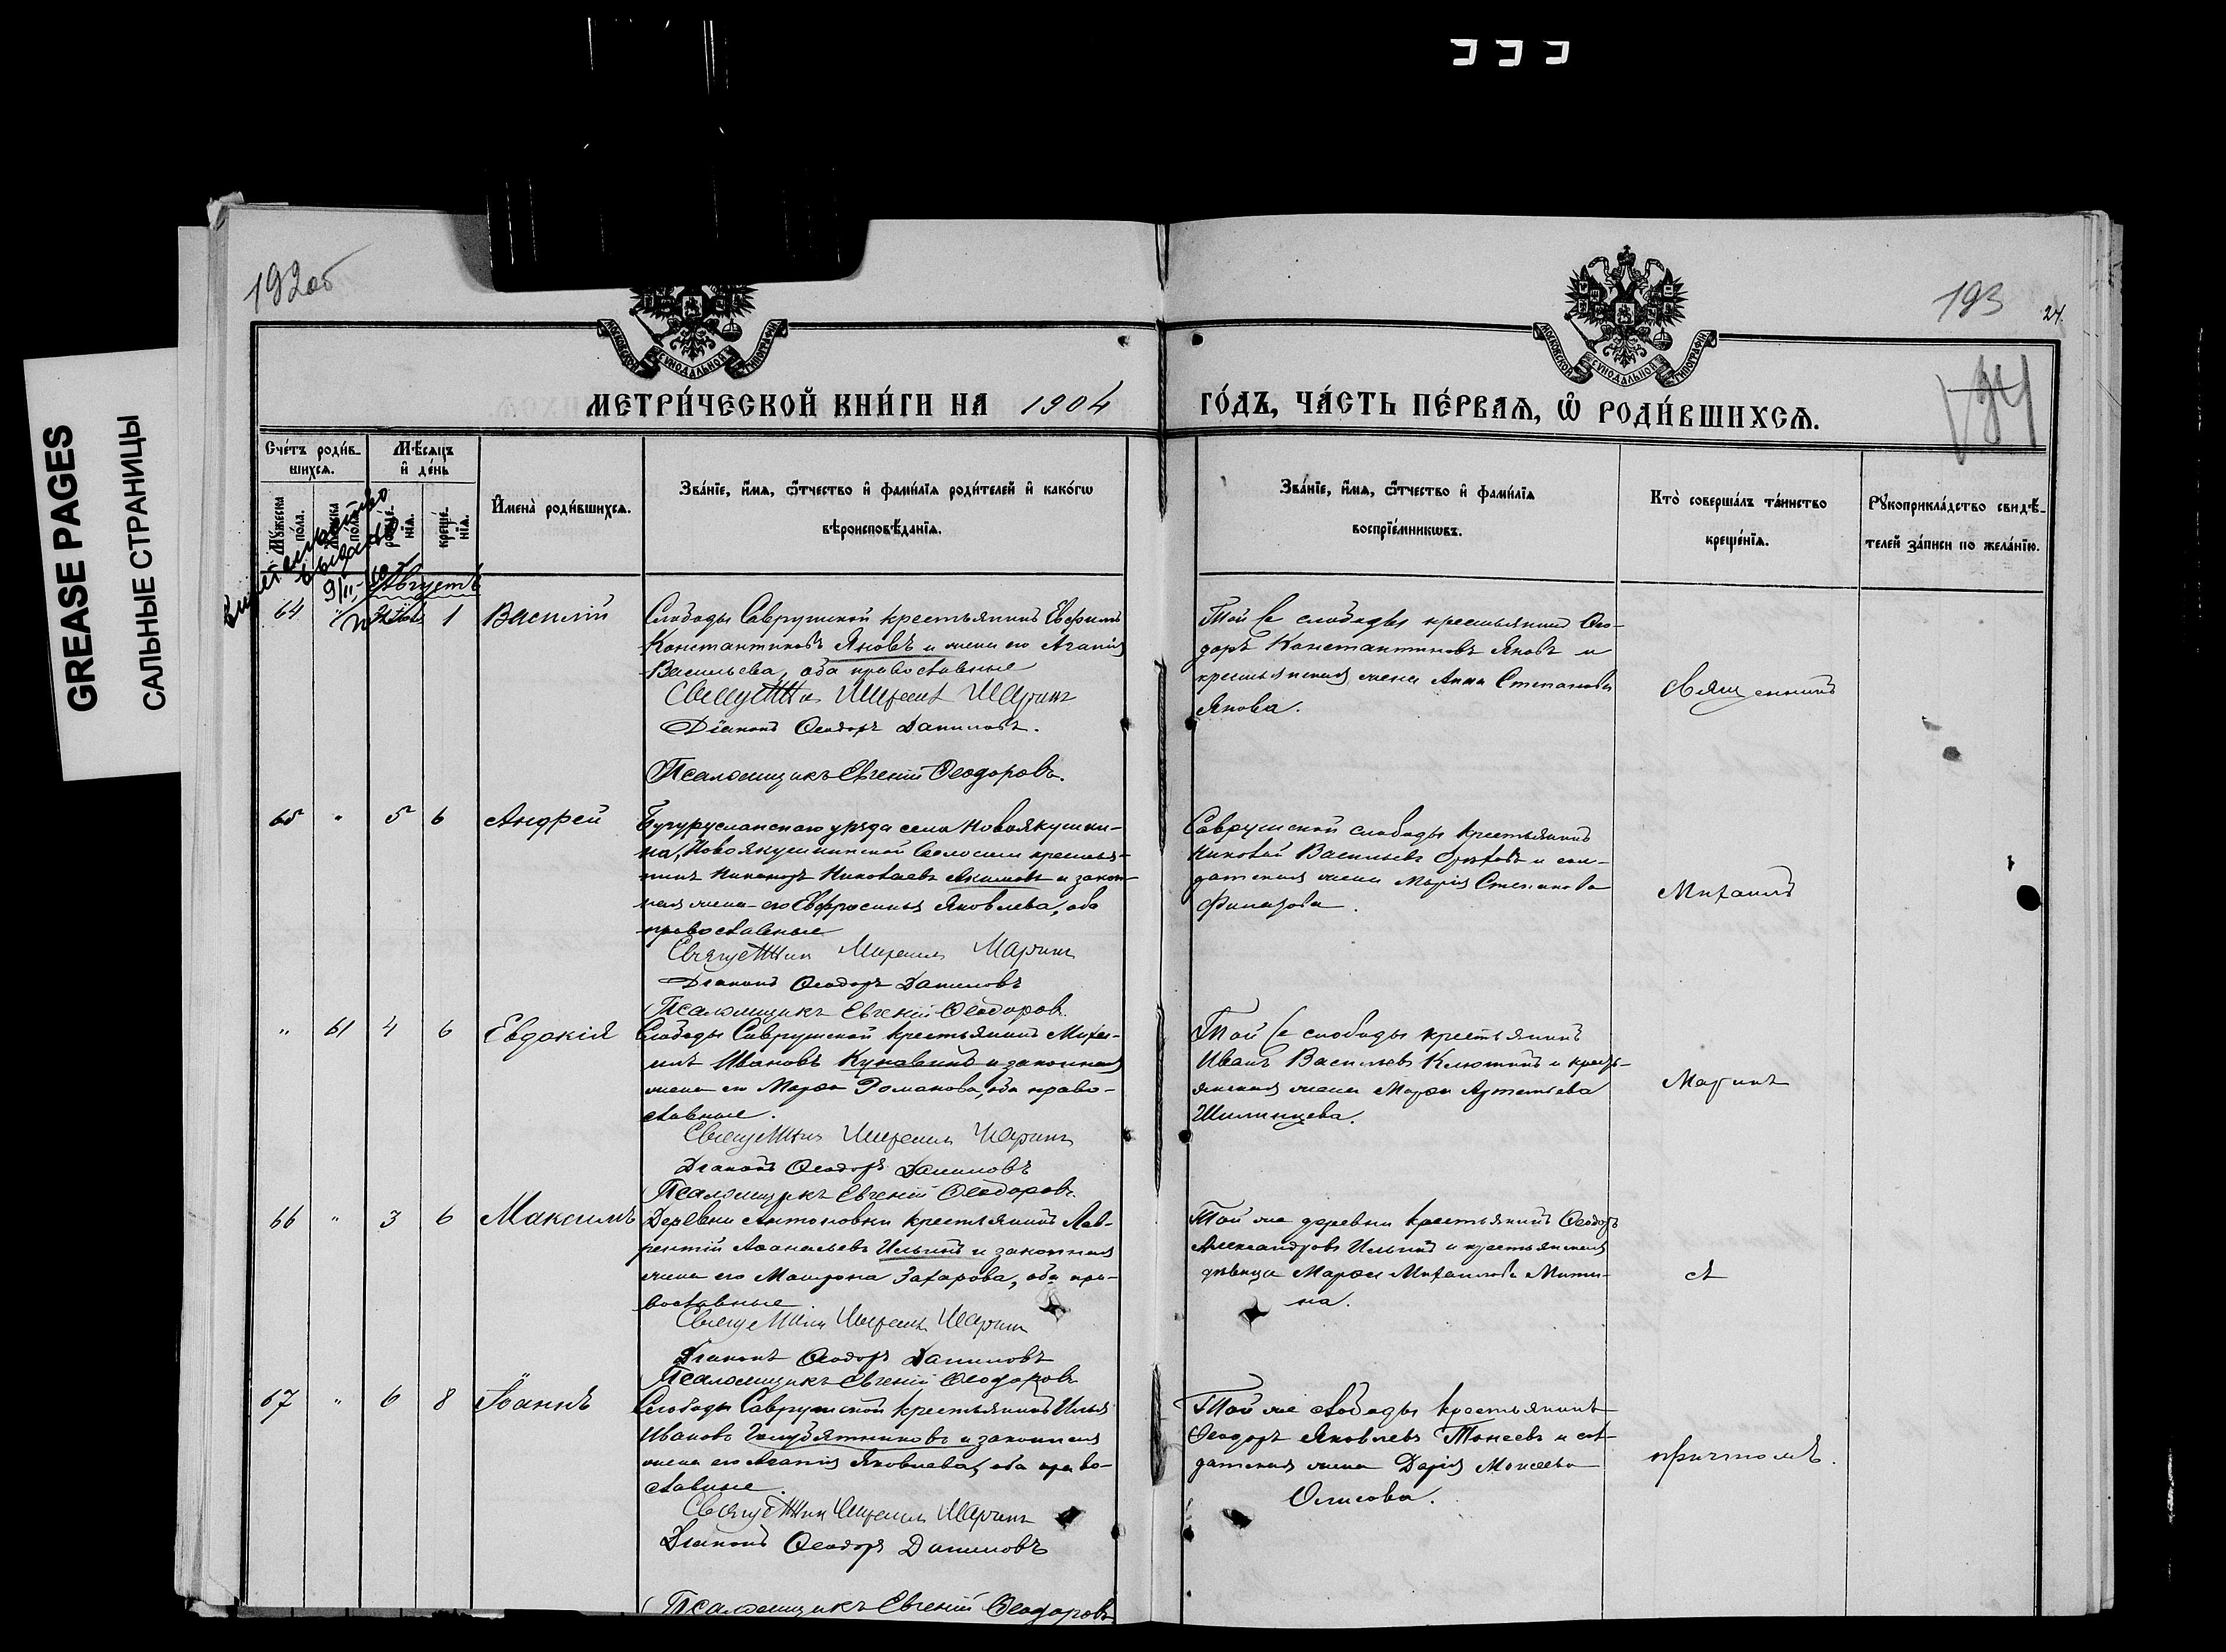 GREASE PAGES
САЛЬНЫЕ СТРАНИЦЫ
192об
193
24.
МОСКОВСКОЙ СѴНОДАЛЬНОЙ ТИПОГРАФІИ
МОСКОВСКОЙ СѴНОДАЛЬНОЙ ТИПОГРАФІИ
МЕТРИ́ЧЕСКОЙ КНИ́ГИ НА 1904
ГО́ДЪ, ЧА́СТЬ ПЕ́РВАѦ, Ѡ҆ РОДИ́ВШИХСѦ.
Сче́тъ роди́в-
шихсѧ.
Мѣ́сѧцъ
и҆ де́нь
Мꙋ́жеска
по́ла.
по́ла.
рожде́-
нїѧ.
креще́-
нїѧ.
И҆мена̀ роди́вшихсѧ.
Зва́нїе, и҆́мѧ, ѻ҆́тчество и҆ фамѝлїѧ роди́телей и҆ како́гѡ
вѣроисповѣ́данїѧ.
Зва́нїе, и҆́мѧ, ѻ҆́тчество и҆ фамѝлїѧ
воспрїе́мникѡвъ.
Кто̀ соверша́лъ та́инство
креще́нїѧ.
Рꙋкоприкла́дство свидѣ́-
телей за́писи по жела́нїю.
Августъ
64 " 1 Василій
Слободы Саврушской крестьянинъ Евфимъ
Константиновъ Яковъ и жена его Агапія
Васильева, оба православные
Священникъ Михаилъ Маринъ
Діаконъ Ѳеодоръ Даниловъ.
Псаломщикъ Евгеній Ѳеодоровъ.
Той же слободы крестьянинъ Ѳео-
доръ Константиновъ Яковъ и
крестьянская жена Анна Степанова
Якова.
Священникъ
65 " 5 6 Андрей
Бугурусланскаго уѣзда села Новоякушки-
на, Новоякушкинской волости крестья-
нинъ Никаноръ Николаевъ Акимовъ и закон-
ная жена его Евфросинья Яковлева, оба
православные
Священникъ Михаилъ Маринъ
Діаконъ Ѳеодоръ Даниловъ
Псаломщикъ Евгеній Ѳеодоровъ
Саврушской слободы крестьянинъ
Николай Васильевъ и сол-
датская жена Марія Степанова
Михаилъ
" 61 4 6 Евдокія
Слободы Саврушской крестьянинъ Миха-
илъ Ивановъ Кунавинъ и законная
жена его Марѳа Романова, оба право-
славные.
Священникъ Михаилъ Маринъ
Діаконъ Ѳеодоръ Даниловъ
Псаломщикъ Евгеній Ѳеодоровъ
Той же слободы крестьянинъ
Иванъ Васильевъ Клюткинъ и кресть-
янская жена Марѳа Артемьева
Шилинцева.
Маринъ
66 " 3 6 Максимъ
Деревни Антоновки крестьянинъ Лав-
рентій Аѳанасьевъ Ильинъ и законная
жена его Матрона Захарова, оба пра-
вославные.
Священникъ Михаилъ Маринъ
Діаконъ Ѳеодоръ Даниловъ
Псаломщикъ Евгеній Ѳеодоровъ
Той же деревни крестьянинъ Ѳеодоръ
Александровъ Ильинъ и крестьянская
дѣвица Марѳа Михаилова Мити-
на.
съ
67 " 6 8 Іоаннъ
Слободы Саврушской крестьянинъ Илья
Ивановъ Голубятниковъ и законная
жена его Агапія Яковлева, оба право-
славные.
Священникъ Михаилъ Маринъ
Діаконъ Ѳеодоръ Даниловъ
Псаломщикъ Евгеній Ѳеодоровъ
Той же слободы крестьянинъ
Ѳеодоръ Яковлевъ Тонеевъ и сол-
датская жена Дарія Моисеева
Олисова.
причтомъ.